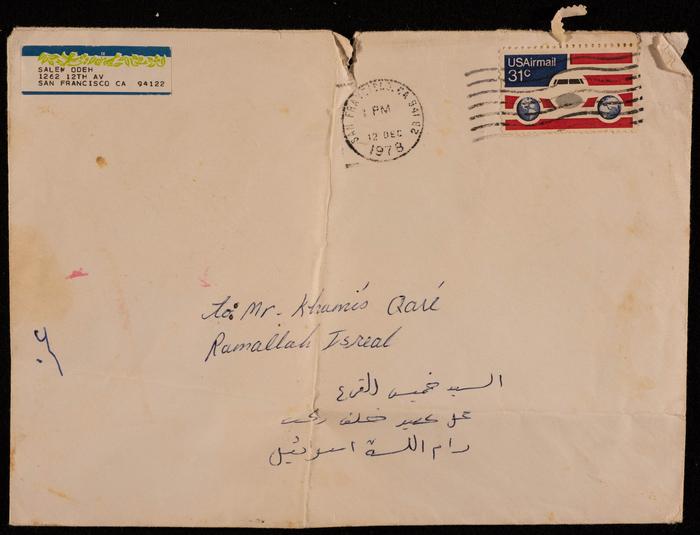 SALEM ODEH
1262 12TH AV
SAN FRANCISCO CA 94122
SAN FRANCISCO, CA 941
PM
12 DEC
1978
28
USAirmail
31c
to: Mr. Khamis Qaré
Ramallah Isreal
السيد خميس القرع
خلف
رام الله اسرئيل